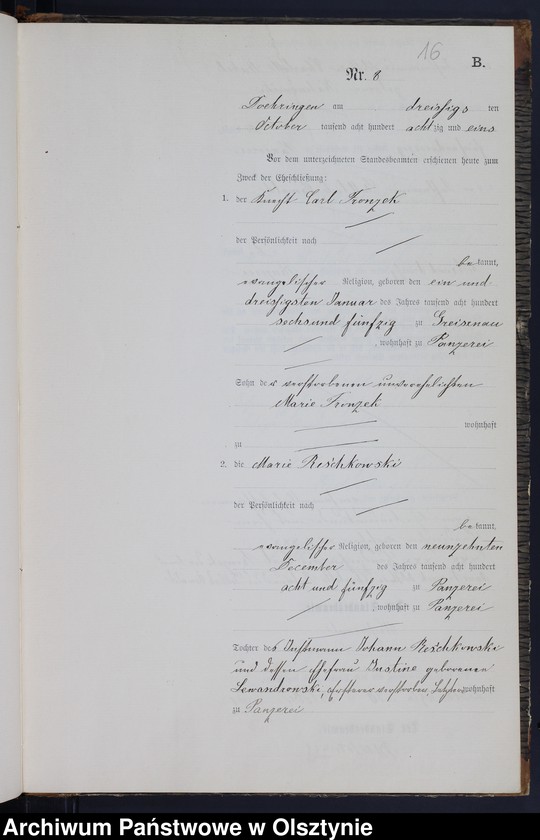 16
B.
Nr. 8
Doehringen am dreißigs ten
October tausend acht hundert achtzig und eins
Vor dem unterzeichneten Standesbeamten erschienen heute zum
Zweck der Eheschließung:
1. der Knecht Carl Fronzek
der Persönlichkeit nach
be kannt,
evangelischer Religion, geboren den ein und
dreissigsten Januar des Jahres tausend acht hundert
sechsund fünfzig zu Greisenau
, wohnhaft zu Panzerei
Sohn der verstorbenen unverehelichten
Marie Fronzek
wohnhaft
zu
2. die Marie Reschkowski
der Persönlichkeit nach
be kannt,
evangelischer Religion, geboren den neunzehnten
December des Jahres tausend acht hundert
acht und fünfzig zu Panzerei
, wohnhaft zu Panzerei
Tochter des Instmann Johann Reschkowski
und dessen Ehefrau Justine geborenen
Lewandrowski, Ersterer verstorben, Letztere wohnhaft
zu Panzerei
Archiwum Państwowe w Olsztynie